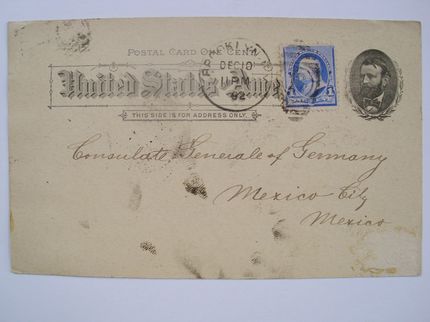 POSTAL CARD ONE CENT
United States of America
BROOKLYN
DEC 10
11 PM
92
THIS SIDE IS FOR ADDRESS ONLY.
Consulate Generale of Germany
Mexico City
Mexico